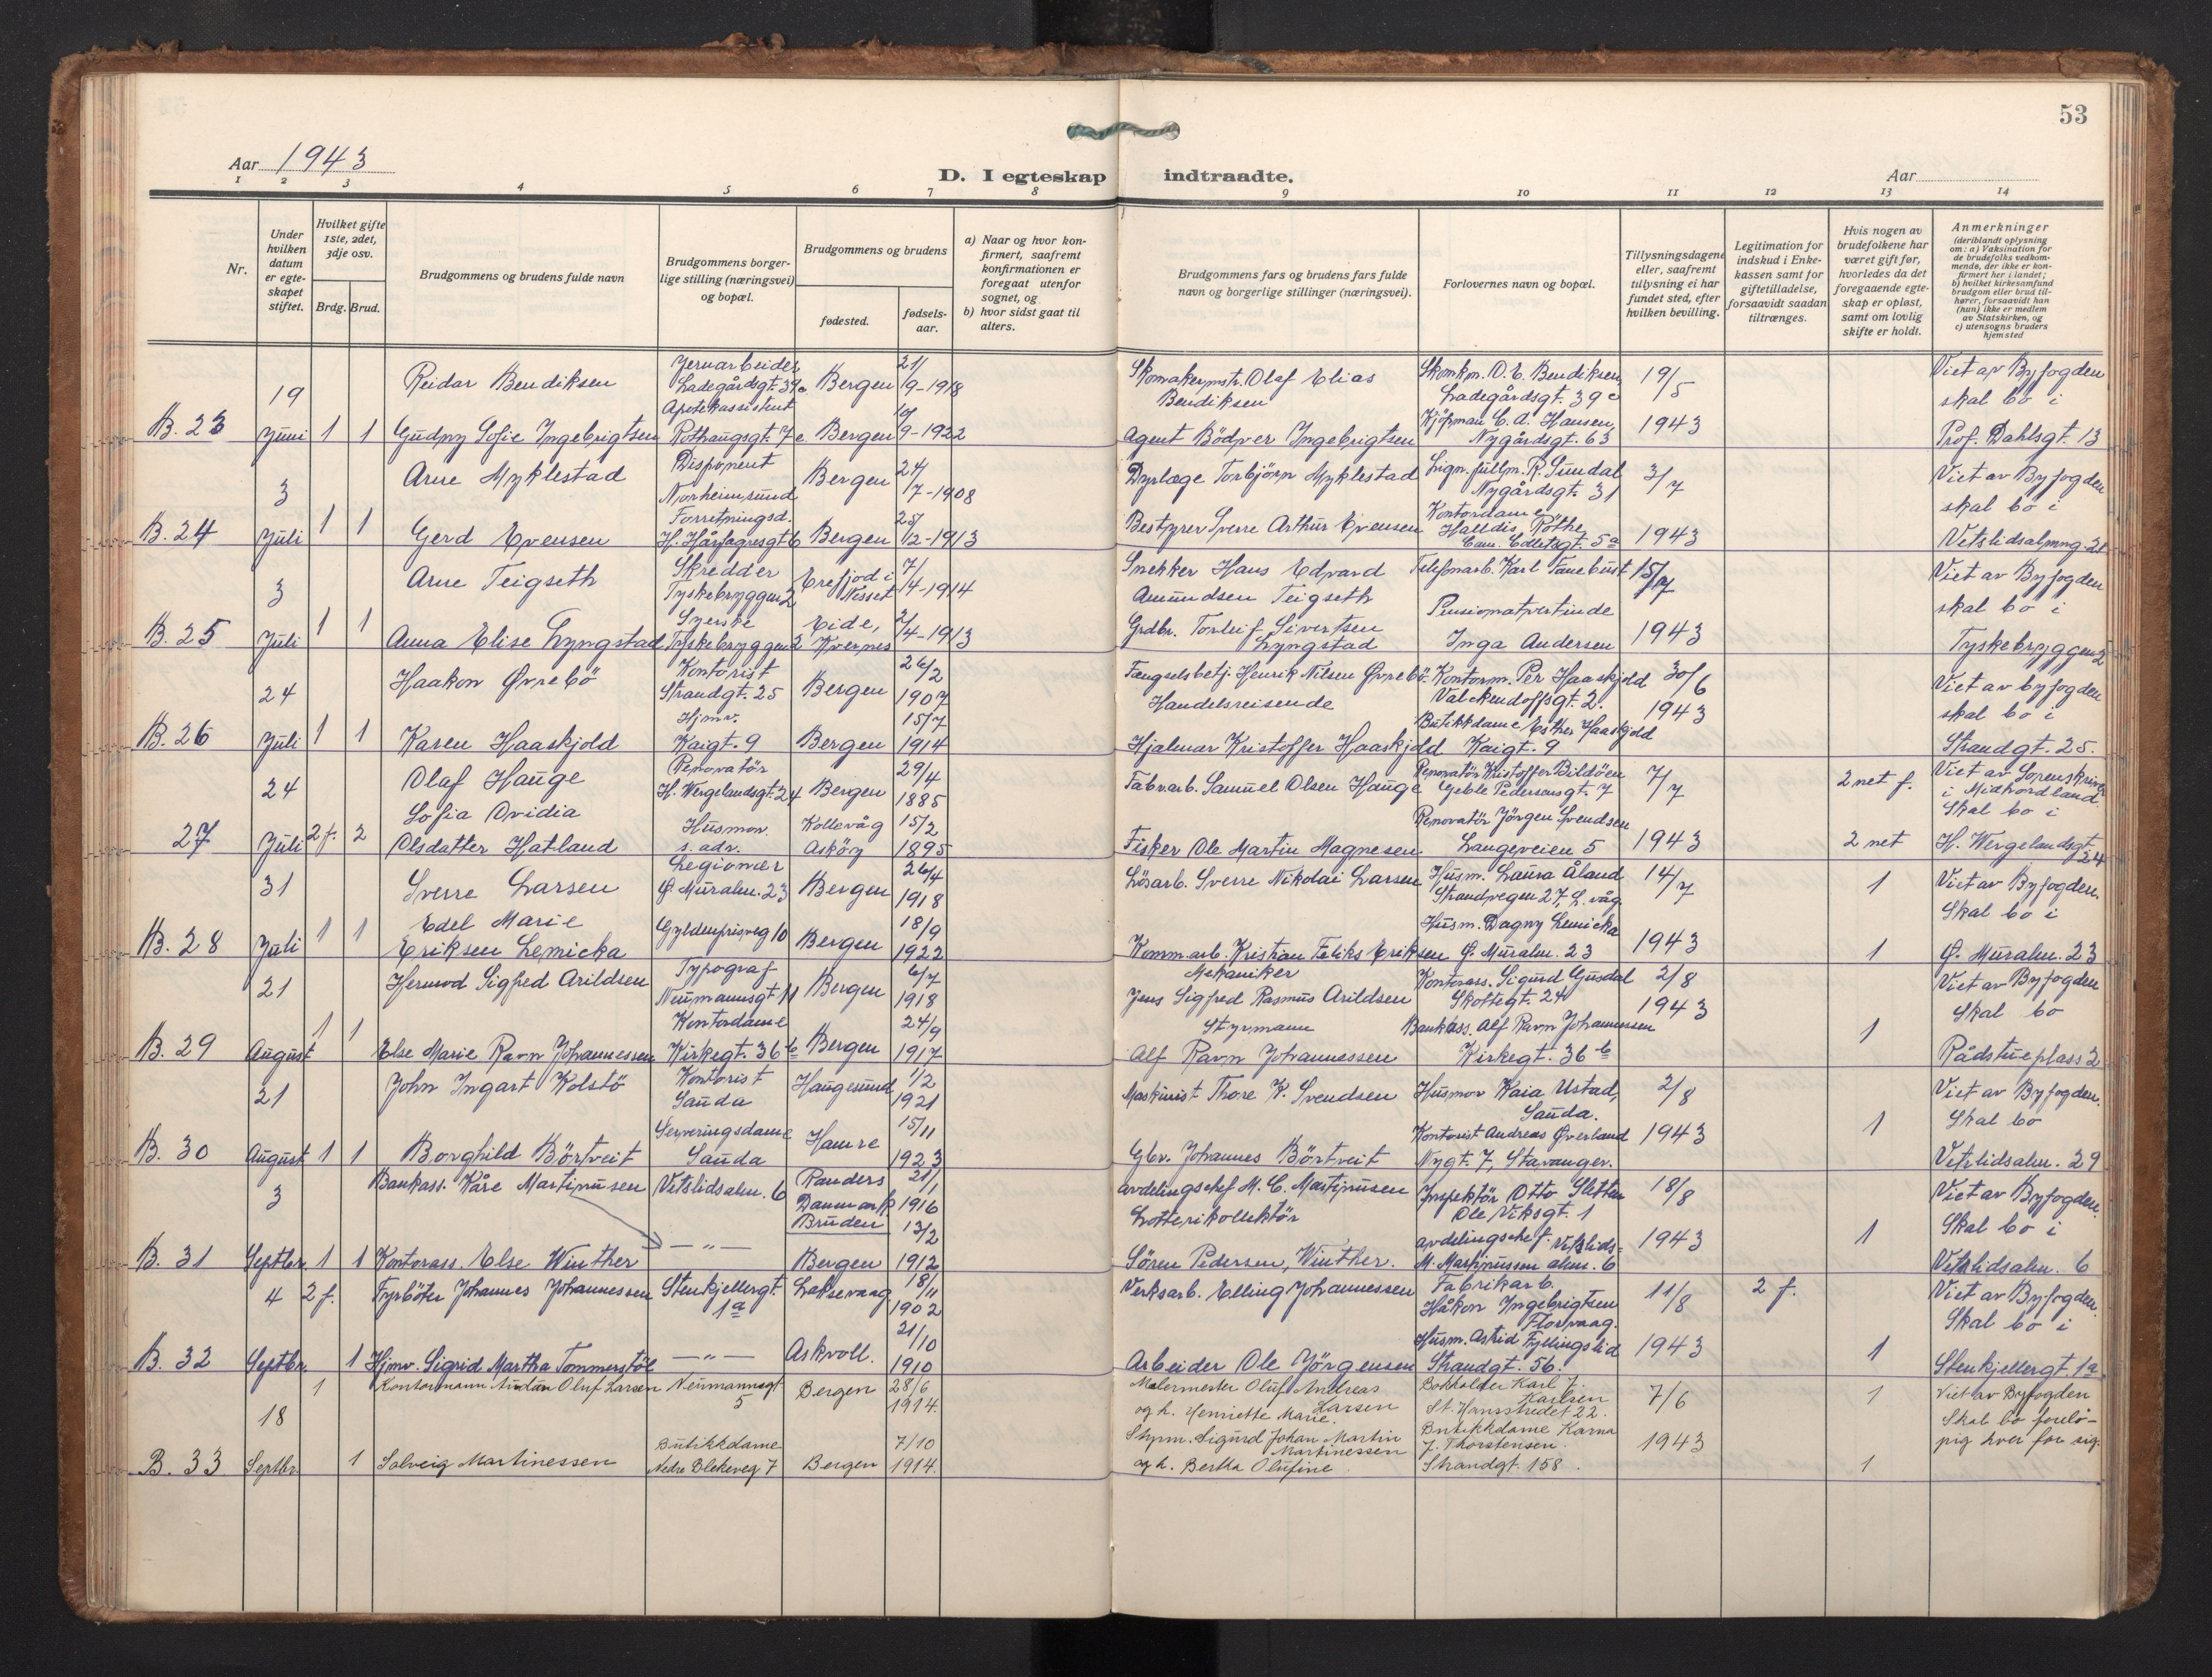 53
Aar 1943
D. I egteskap indtraadte.
Aar
1 2 3 4 5 6 7 8 9 10 11 12 13 14
Nr.
Under hvilken datum er egteskapet stiftet.
Hvilket gifte 1ste, 2det, 3dje osv.
Brdg. Brud.
Brudgommens og brudens fulde navn
Brudgommens borgerlige stilling (næringsvei) og bopæl.
Brudgommens og brudens
fødested.
fødselsaar.
a) Naar og hvor konfirmert, saafremt konfirmationen er foregaat utenfor sognet, og
b) hvor sidst gaat til alters.
Brudgommens fars og brudens fars fulde navn og borgerlige stillinger (næringsvei).
Forlovernes navn og bopæl.
Tillysningsdagene eller, saafremt tillysning ei har fundet sted, efter hvilken bevilling.
Legitimation for indskud i Enkekassen samt for giftetilladelse, forsaavidt saadan tiltrænges.
Hvis nogen av brudefolkene har været gift før, hvorledes da det foregaaende egteskap er opløst, samt om lovlig skifte er holdt.
Anmerkninger (deriblandt oplysning om: a) Vaksination for de brudefolks vedkommende, der ikke er konfirmert her i landet; b) hvilket kirkesamfund brudgom eller brud tilhører, forsaavidt han (hun) ikke er medlem av Statskirken, og c) utensogns bruders hjemsted
19 Reidar Bendiksen Jernarbeider Ladegårdsgt. 39c Bergen 21/9-1918 Skomakermstr. Olaf Elias Bendiksen Skomkm. O. E. Bendiksen Ladegårdsgt. 39c 19/5 Viet av Byfogden skal bo i
B. 23 Juni 1 1 Gudny Sofie Ingebrigtsen Apotekassistent Rothaugsgt. 7c Bergen 10/9-1922 Agent Bödver Ingebrigtsen Kjöpman C. A. Hansen, Nygårdsgt. 63 1943 Prof. Dahlsgt. 13
3 Arne Myklestad Disponent Norheimsund Bergen 24/7-1908 Dyrlæge Torbjörn Myklestad Lign. fullm. R. Sundal Nygårdsgt. 31 3/7 Viet av Byfogden skal bo i
B. 24 Juli 1 1 Gerd Evensen Forretningsd. H. Hårfagresgt. 6 Bergen 25/12-1913 Bestyrer Sverre Arthur Evensen Kontordame Halldis Röthe Cam. Colletsgt. 5a 1943 Vetrlidsalmng. 21
3 Arne Teigseth Skredder Tyskebryggen 2 Eresfjod i Nesset 7/4-1914 Snekker Hans Edvard Amundsen Teigseth Telefonarb. Karl Tanebust 15/7 Viet av Byfogden skal bo i
B. 25 Juli 1 1 Anna Elise Lyngstad Syerske Tyskebryggen 2 Eide, Kvernes 2/4-1913 Grdbr. Torleif Sivertsen Lyngstad Pensionatvertinde Inga Andersen 1943 Tyskebryggen 2
24 Haakon Øvrebö Kontorist Strandgt. 25 Bergen 26/2 1907 Fængselsbetj. Henrik Nilsen Øvrebö Kontorm. Per Haaskjold Valckendorffsgt. 2. 30/6 Viet av byfogden skal bo i
B. 26 Juli 1 1 Karen Haaskjold Hjmv. Kaigt. 9 Bergen 15/7 1914 Handelsreisende Hjalmar Kristoffer Haaskjold Butikkdame Esther Haaskjold Kaigt. 9 1943 Strandgt. 25.
24 Olaf Hauge Renovatör H. Wergelandsgt. 24 Bergen 29/4 1885 Fabr.arb. Samuel Olsen Hauge Renovatör Kristoffer Bildöen Geble Pedersensgt. 7 7/7 2 net f. Viet av Sorenskriver i Midhordland. Skal bo i
27 Juli 2 f. 2 Sofia Ovidia Olsdatter Hatland Husmor. s. adr. Kollevåg Asköy 15/2 1895 Fisker Ole Martin Magnesen Renovatör Jörgen Svendsen Langeveien 5 1943 2 net H. Wergelandsgt. 24
31 Sverre Larsen Legionær Ø. Muralm. 23 Bergen 26/4 1918 Lösarb. Sverre Nikolai Larsen Husm. Laura Åland Strandvegen 27, L. våg. 14/7 1 Viet av Byfogden. Skal bo i
B. 28 Juli 1 1 Edel Marie Eriksen Lemicka Gyldenprisveg 10 Bergen 18/9 1922 Komm.arb. Kristian Feliks Eriksen Husm. Dagny Lemicka Ø. Muralm. 23 1943 1 Ø. Muralm. 23
21 Hermod Sigfred Arildsen Typograf Neumannsgt 11 Bergen 6/7 1918 Mekaniker Jens Sigfred Rasmus Arildsen Kontorass. Sigurd Gusdal Skottegt. 24 2/8 Viet av Byfogden Skal bo
B. 29 August 1 1 Else Marie Ravn Johannessen Kontordame Kirkegt. 36b Bergen 24/9 1917 Styrmann Alf Ravn Johannessen Bankass. Alf Ravn Johannessen Kirkegt. 36b 1943 1 Rådstueplass 2
21 John Ingart Kolstö Kontorist Sauda Haugesund 1/2 1921 Maskinist Thore K. Svendsen Husmor Kaia Ustad, Sauda. 2/8 Viet av Byfogden. Skal bo
B. 30 August 1 1 Borghild Börtveit Serveringsdame Sauda Hamre 15/11 1923 Gbr. Johannes Börtveit Kontorist Andreas Øverland Nygt. 7, Stavanger. 1943 1 Vetrlidsalm. 29
3 Bankass. Kåre Martinusen Vetrlidsalm. 6 Randers Danmark 21/1 1916 Avdelingschef M. C. Martinusen Inspektör Otto Sletten Ole Viksgt. 1 18/8 Viet av Byfogden. Skal bo i
B. 31 Septbr. 1 1 Kontorass. Else Winther — " — Bruden Bergen 13/2 1912 Lotterikollektör Sören Pedersen Winther. avdelingschef. M. Martinussen Vetrlidsalm. 6 1943 1 Vetrlidsalm. 6
4 2 f. Fyrböter Johannes Johannessen Stenkjellergt. 1a Laksevaag 18/11 1902 Verksarb. Elling Johannessen Fabrikarb. Håkon Ingebrigtsen Florvaag. 11/8 2 f. Viet av Byfogden. Skal bo i
B. 32 Septbr. 1 Hjmv. Sigrid Martha Tommerstöl — " — Askvoll. 21/10 1910 Arbeider Ole Jörgensen Husm. Astrid Fyllingslid Strandgt. 56. 1943 1 Stenkjellergt. 1a
18 1 Kontormann Audun Oluf Larsen Neumannsgt 5 Bergen 28/6 1914. Malermester Oluf Andreas Larsen og h. Henriette Marie. Bokholder Karl J. Karlsen St. Hansstredet 22. 7/6 1 Viet av Byfogden Skal bo foreløpig hver for sig.
B. 33 Septbr. 1 Solveig Martinessen Butikkdame Nedre Blekeveg 7 Bergen 7/10 1914. Styrm. Sigurd Johan Martin Martinessen og h. Bertha Olufine. Butikkdame Karna J. Thorstensen. Strandgt. 158. 1943 1